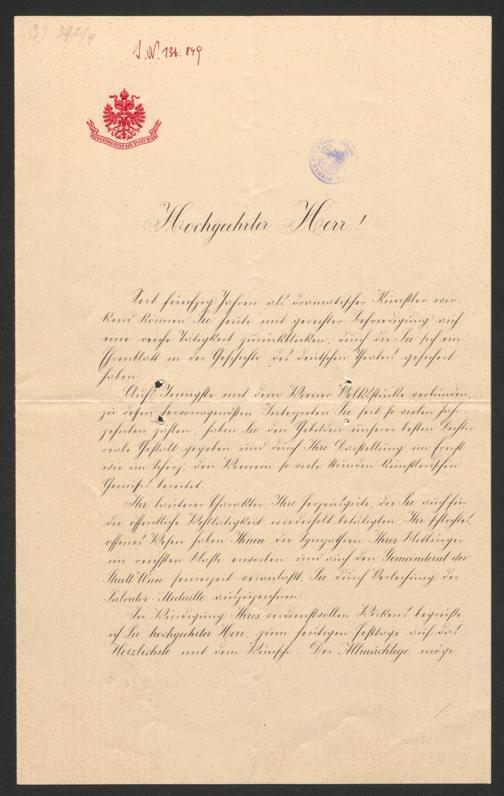 I. N. 136.849
BÜRGERMEISTER DER STADT WIEN
Hochgeehrter Herr!
Seit fünfzig Jahren als dramatischer Künstler wir-
kend können Sie heute mit gerechter Befriedigung auf
eine reiche Tätigkeit zurückblicken, durch die Sie sich ein
Ehrenblatt in der Geschichte des deutschen Theaters gesichert
haben.
Aufs Innigste mit dem Wiener Volksstücke verbunden,
zu dessen hervorragendsten Interpreten Sie seit so vielen Jahr-
zehnten zählen, haben Sie den Gebilden unserer besten Dichter
reale Gestalt gegeben und durch Ihre Darstellung im Ernst
wie im Scherz, den Wienern so viele Stunden künstlerischen
Genusses bereitet.
Ihr lauterer Charakter, Ihre Herzensgüte, die Sie auch für
die öffentliche Wohltätigkeit wiederholt betätigten, Ihr schlichtes,
offenes Wesen haben Ihnen die Sympathien Ihrer Mitbürger
im reichsten Maße erworben und auch den Gemeinderat der
Stadt Wien seinerzeit veranlaßt, Sie durch Verleihung der
Salvator-Medaille auszuzeichnen.
In Würdigung Ihres verdienstvollen Wirkens begrüße
ich Sie, hochgeehrter Herr, zum heutigen Festtage auf das
Herzlichste mit dem Wunsche: Der Allmächtige möge